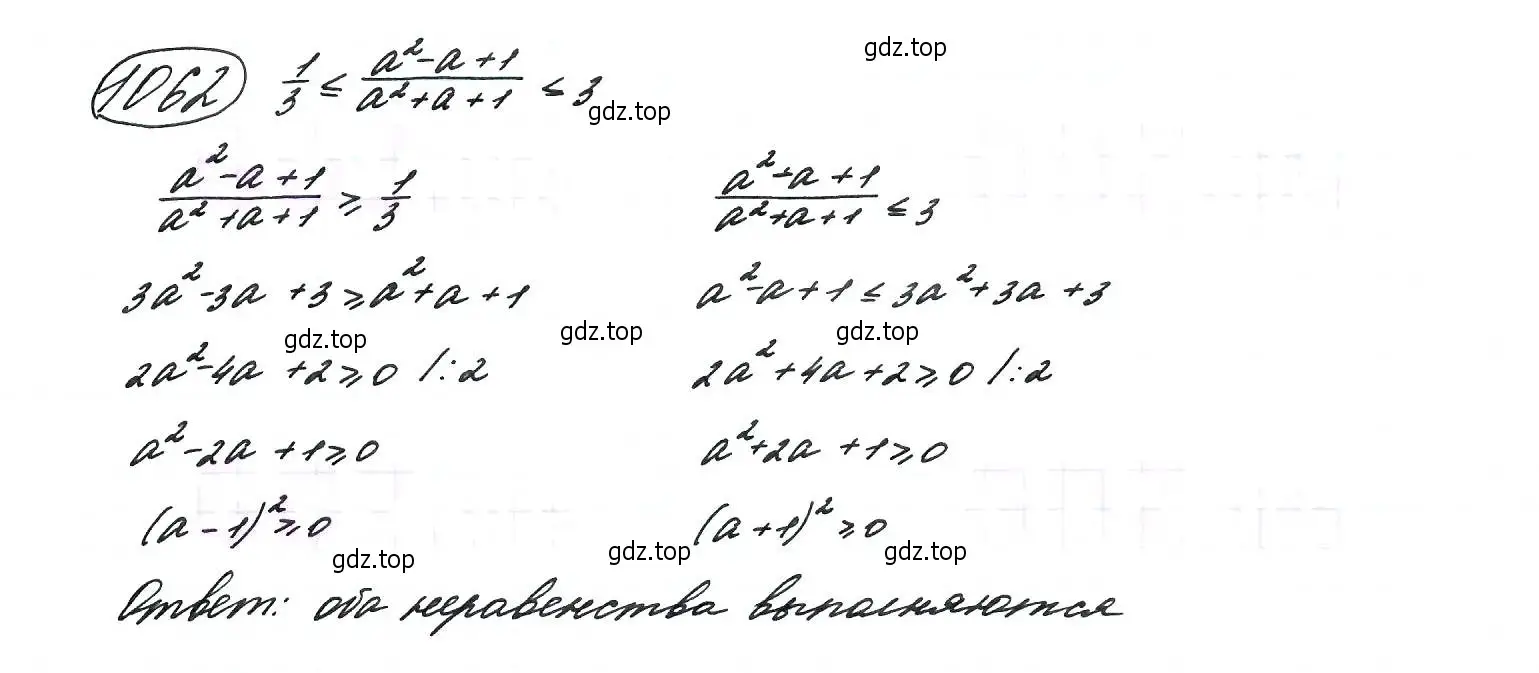 gdz.top
1062 1/3 ≤ (a²-a+1)/(a²+a+1) ≤ 3
gdz.top
(a²-a+1)/(a²+a+1) ≥ 1/3 (a²-a+1)/(a²+a+1) ≤ 3
3a²-3a+3 ≥ a²+a+1 a²-a+1 ≤ 3a²+3a+3
gdz.top gdz.top gdz.top
2a²-4a+2 ≥ 0 /:2 2a²+4a+2 ≥ 0 /:2
a²-2a+1 ≥ 0 a²+2a+1 ≥ 0
(a-1)² ≥ 0 (a+1)² ≥ 0
gdz.top gdz.top gdz.top
Ответ: оба неравенства выполняются